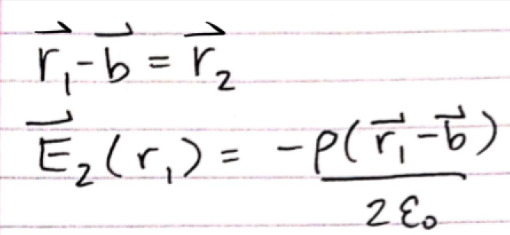 $\vec{r}_1 - \vec{b} = \vec{r}_2$
$\vec{E}_2(r_1) = \frac{-\rho(\vec{r}_1 - \vec{b})}{2\varepsilon_0}$